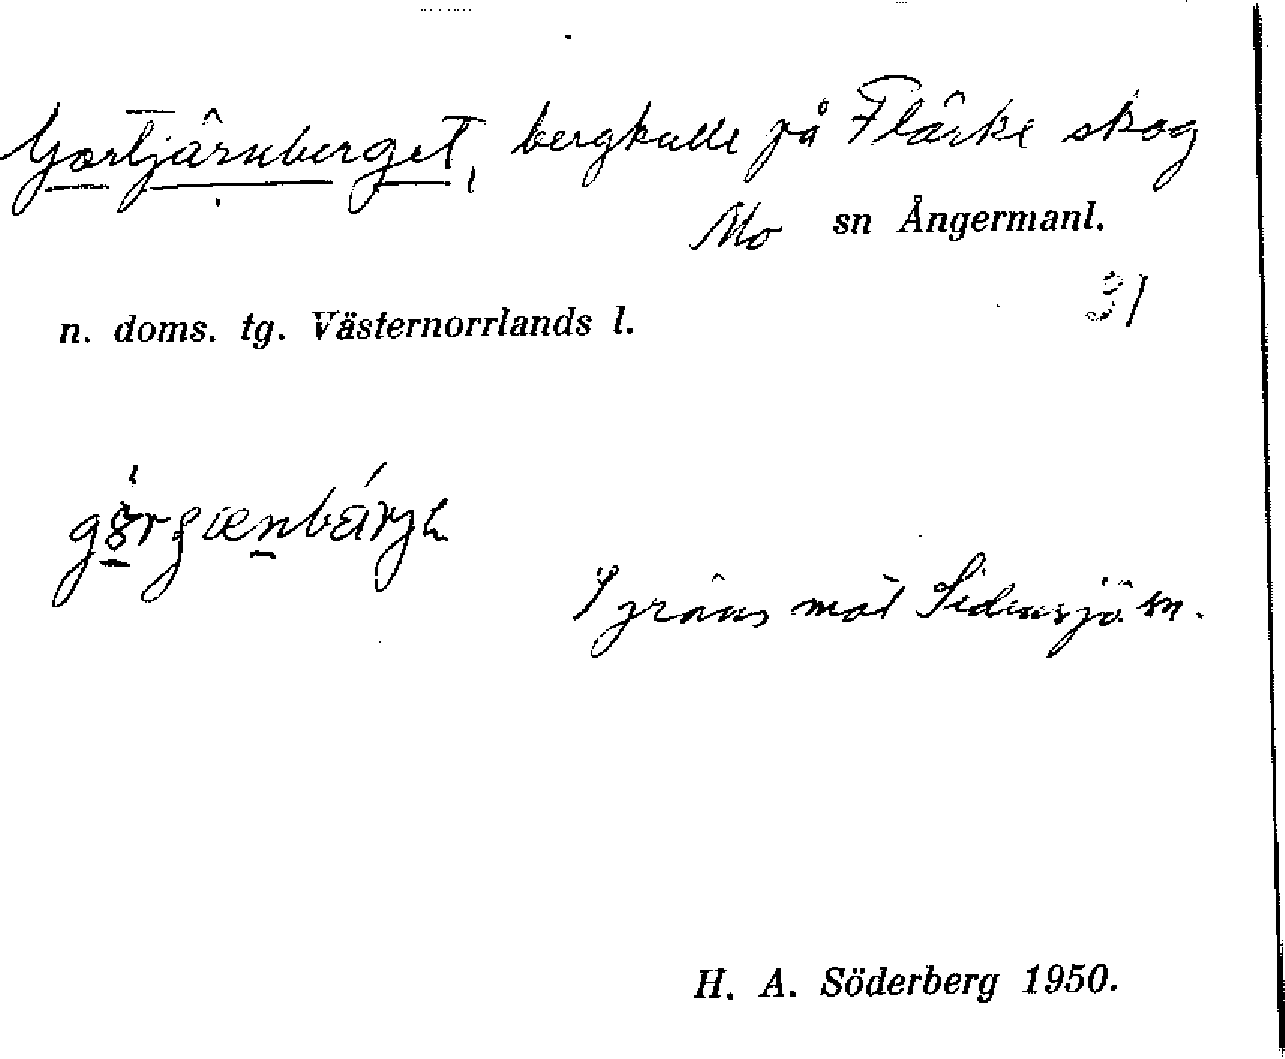 Gortjärnberget, bergkulle på Flärke skog
Mo sn Ångermanl.
31
n. doms. tg. Västernorrlands l.
I gräns mot Sidensjö sn.
H. A. Söderberg 1950.